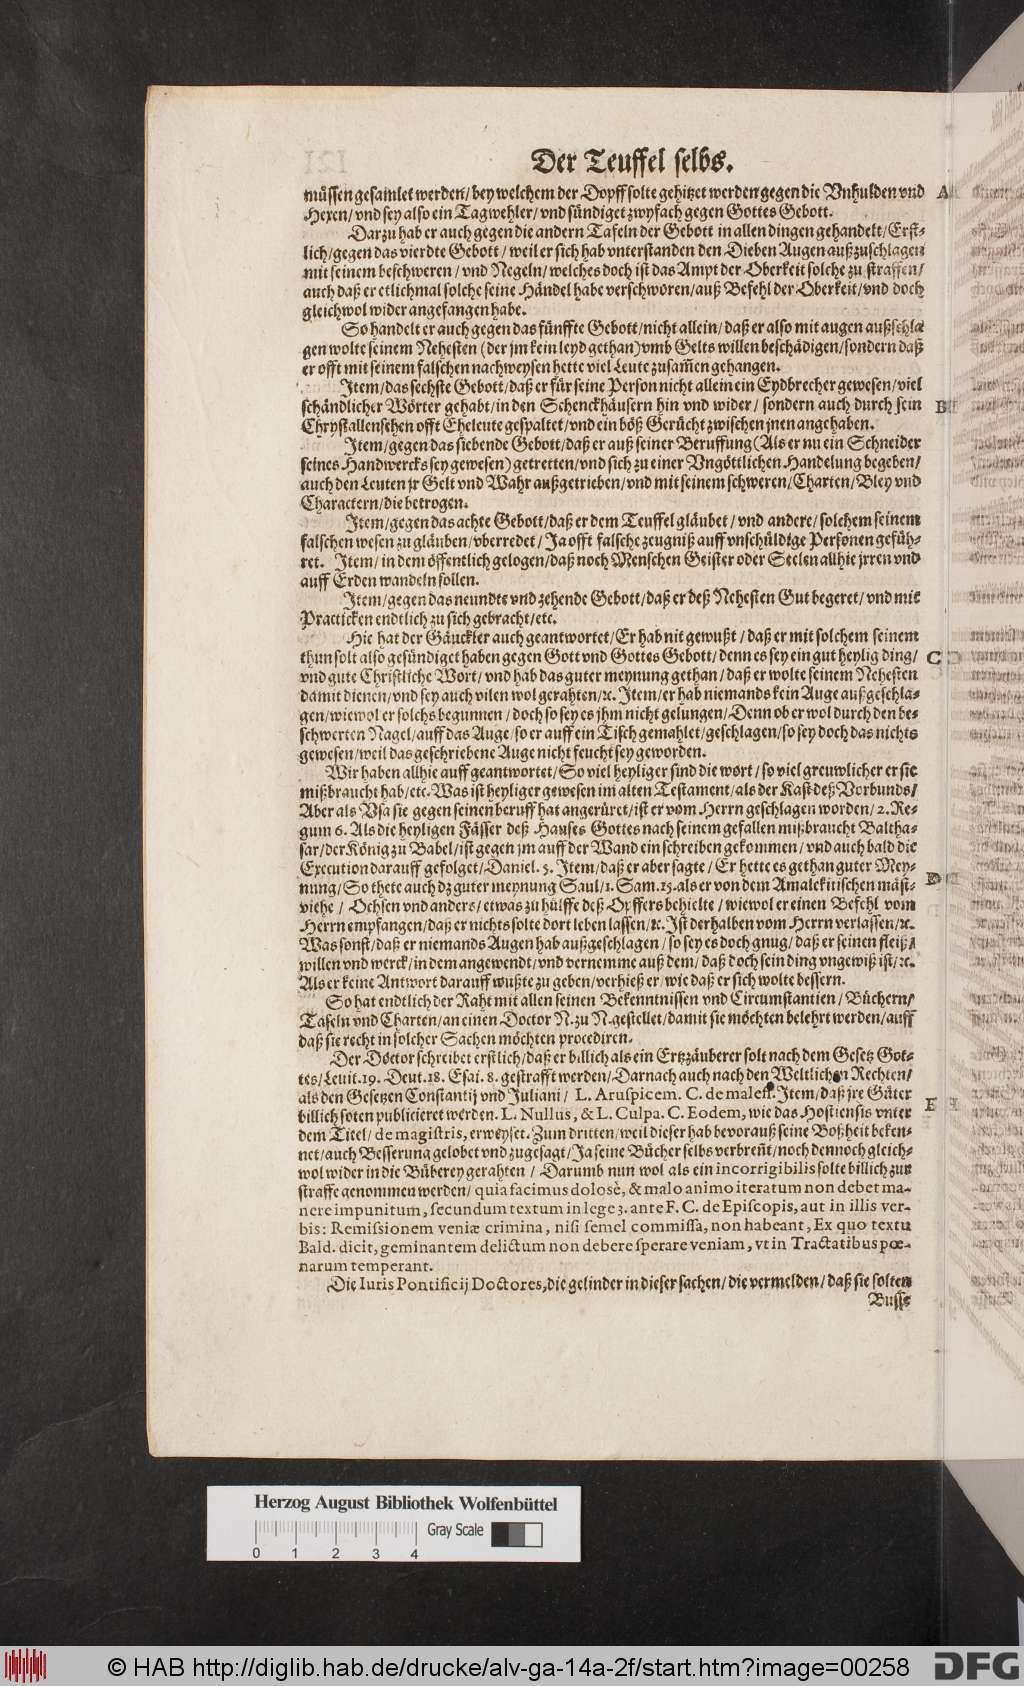 Der Teuffel selbs.
müssen gesamlet werden/ bey welchem der Dopff solte gehitzet werden gegen die Vnhulden vnd
Hexen/ vnd sey also ein Tagwehler/ vnd sündiget zwyfach gegen Gottes Gebott.
Darzu hab er auch gegen die andern Tafeln der Gebott in allen dingen gehandelt/ Erst-
lich/ gegen das vierdte Gebott/ weil er sich hab vnterstanden den Dieben Augen außzuschlagen
mit seinem beschweren/ vnd Negeln/ welches doch ist das Ampt der Oberkeit solche zu straffen/
auch daß er etlichmal solche seine Händel habe verschworen/ auß Befehl der Oberkeit/ vnd doch
gleichwol wider angefangen habe.
So handelt er auch gegen das fünffte Gebott/ nicht allein/ daß er also mit augen außschla
gen wolte seinem Nehesten (der jm kein leyd gethan) vmb Gelts willen beschädigen/ sondern daß
er offt mit seinem falschen nachweysen hette viel Leute zusam̃en gehangen.
Item/ das sechste Gebott/ daß er für seine Person nicht allein ein Eydbrecher gewesen/ viel
schändlicher Wörter gehabt/ in den Schenckhäusern hin vnd wider/ sondern auch durch sein
Chrystallensehen offt Eheleute gespaltet/ vnd ein böß Gerücht zwischen jnen angehaben.
Item/ gegen das siebende Gebott/ daß er auß seiner Beruffung (Als er nu ein Schneider
seines Handwercks sey gewesen) getretten/ vnd sich zu einer Vngöttlichen Handelung begeben/
auch den Leuten jr Gelt vnd Wahr außgetrieben/ vnd mit seinem schweren/ Charten/ Bley vnd
Charactern/ die betrogen.
Item/ gegen das achte Gebott/ daß er dem Teuffel gläubet/ vnd andere/ solchem seinem
falschen wesen zu gläuben/ vberredet/ Ja offt falsche zeugniß auff vnschüldige Personen gefüh-
ret. Item/ in dem öffentlich gelogen/ daß noch Menschen Geister oder Seelen allhie jrren vnd
auff Erden wandeln sollen.
Item/ gegen das neundte vnd zehende Gebott/ daß er deß Nehesten Gut begeret/ vnd mit
Practicken endtlich zu sich gebracht/ etc.
Hie hat der Gäuckler auch geantwortet/ Er hab nit gewußt/ daß er mit solchem seinem
thun solt also gesündiget haben gegen Gott vnd Gottes Gebott/ denn es sey ein gut heylig ding/
vnd gute Christliche Wort/ vnd hab das guter meynung gethan/ daß er wolte seinem Nehesten
damit dienen/ vnd sey auch vilen wol gerahten/ ꝛc. Item/ er hab niemands kein Auge außgeschla-
gen/ wiewol er solchs begunnen/ doch so sey es jhm nicht gelungen/ Denn ob er wol durch den be-
schwerten Nagel/ auff das Auge/ so er auff ein Tisch gemahlet/ geschlagen/ so sey doch das nichts
gewesen/ weil das geschriebene Auge nicht feucht sey geworden.
Wir haben allhie auff geantwortet/ So viel heyliger sind die wort/ so viel greuwlicher er sie
mißbraucht hab/ etc. Was ist heyliger gewesen im alten Testament/ als der Kast deß Verbunds/
Aber als Vsa sie gegen seinen beruff hat angerüret/ ist er vom Herrn geschlagen worden/ 2. Re-
gum 6. Als die heyligen Fässer deß Hauses Gottes nach seinem gefallen mißbraucht Baltha-
sar/ der König zu Babel/ ist gegen jm auff der Wand ein schreiben gekommen/ vnd auch bald die
Execution darauff gefolget/ Daniel. 5. Item/ daß er aber sagte/ Er hette es gethan guter Mey-
nung/ So thete auch dz guter meynung Saul/ 1. Sam. 15. als er von dem Amalekitischen mäst-
viehe/ Ochsen vnd anders/ etwas zu hülffe deß Opffers behielte/ wiewol er einen Befehl vom
Herrn empfangen/ daß er nichts solte dort leben lassen/ ꝛc. Ist derhalben vom Herrn verlassen/ ꝛc.
Was sonst/ daß er niemands Augen hab außgeschlagen/ so sey es doch gnug/ daß er seinen fleiß/
willen vnd werck/ in dem angewendt/ vnd vernemme auß dem/ daß doch sein ding vngewiß ist/ ꝛc.
Als er keine Antwort darauff wußte zu geben/ verhieß er/ wie daß er sich wolte bessern.
So hat endtlich der Raht mit allen seinen Bekenntnissen vnd Circumstantien/ Büchern/
Tafeln vnd Charten/ an einen Doctor N. zu N. gestellet/ damit sie möchten belehrt werden/ auff
daß sie recht in solcher Sachen möchten procediren.
Der Doctor schreibet erstlich/ daß er billich als ein Ertzzäuberer solt nach dem Gesetz Got-
tes/ Leuit. 19. Deut. 18. Esai. 8. gestrafft werden/ Darnach auch nach den Weltlichen Rechten/
als den Gesetzen Constantij vnd Juliani/ L. Aruspicem. C. de malefi. Item/ daß jre Güter
billich soten publicieret werden. L. Nullus, & L. Culpa. C. Eodem, wie das Hostiensis vnter
dem Titel/ de magistris, erweyset. Zum dritten/ weil dieser hab bevorauß seine Boßheit beken-
net/ auch Besserung gelobet vnd zugesagt/ Ja seine Bücher selbs verbreñt/ noch dennoch gleich-
wol wider in die Büberey gerahten/ Darumb nun wol als ein incorrigibilis solte billich zur
straffe genommen werden/ quia facimus dolosè, & malo animo iteratum non debet ma-
nere impunitum, secundum textum in lege 3. ante F. C. de Episcopis, aut in illis ver-
bis: Remissionem veniæ crimina, nisi semel commissa, non habeant, Ex quo textu
Bald. dicit, geminantem delictum non debere sperare veniam, vt in Tractatibus pœ-
narum temperant.
Die Iuris Pontificij Doctores, die gelinder in dieser sachen/ die vermelden/ daß sie solten
Busse
A
B
C
D
E
Herzog August Bibliothek Wolfenbüttel
Gray Scale
0 1 2 3 4
© HAB http://diglib.hab.de/drucke/alv-ga-14a-2f/start.htm?image=00258
DFG